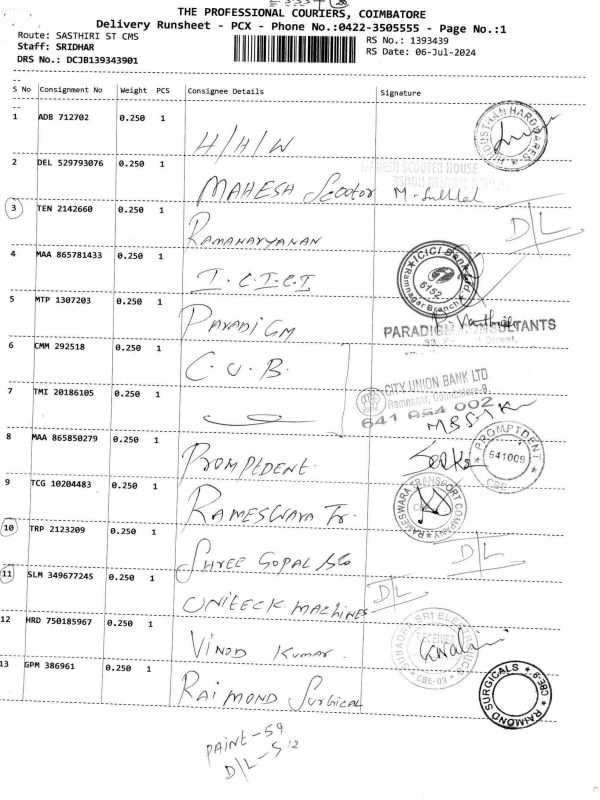 THE PROFESSIONAL COURIERS, COIMBATORE
Delivery Runsheet - PCX - Phone No.:0422-3505555 - Page No.:1
Route: SASTHIRI ST CMS
Staff: SRIDHAR
DRS No.: DCJB139343901
RS No.: 1393439
RS Date: 06-Jul-2024
S No Consignment No Weight PCS Consignee Details Signature
1 ADB 712702 0.250 1 H/H/W
HINDUSTHAN HARDWARES
2 DEL 529793076 0.250 1 MAHESH Scootor
MAHESH SCOOTER HOUSE
3 TEN 2142660 0.250 1 RAMANARYANAN D/L
4 MAA 865781433 0.250 1 I.C.I.C.I
ICICI Bank Ltd
6152
Ramnagar Branch
5 MTP 1307203 0.250 1 PARADIGM
PARADIGM CONSULTANTS
6 CMM 292518 0.250 1 C.U.B.
CITY UNION BANK LTD
Ramnagar, Coimbatore-9.
7 TMI 20186105 0.250 1
8 MAA 865850279 0.250 1 PROMPTDENT.
PROMPTDENT
641009
CBE
9 TCG 10204483 0.250 1 RAMESWARA Tr.
RAMESWARA TRANSPORT COMPANY
10 TRP 2123209 0.250 1 SHREE GOPAL &Co D/L
11 SLM 349677245 0.250 1 UNITECK MACHINES D/L
12 HRD 750185967 0.250 1 VINOD KUMAR.
SUBADRA SRI ELECTRONICS
RECEIVER
CBE-09
13 GPM 386961 0.250 1 RAIMOND SURGICAL
RAIMOND SURGICALS
CBE-9
PAINT-59
D/L-5
12